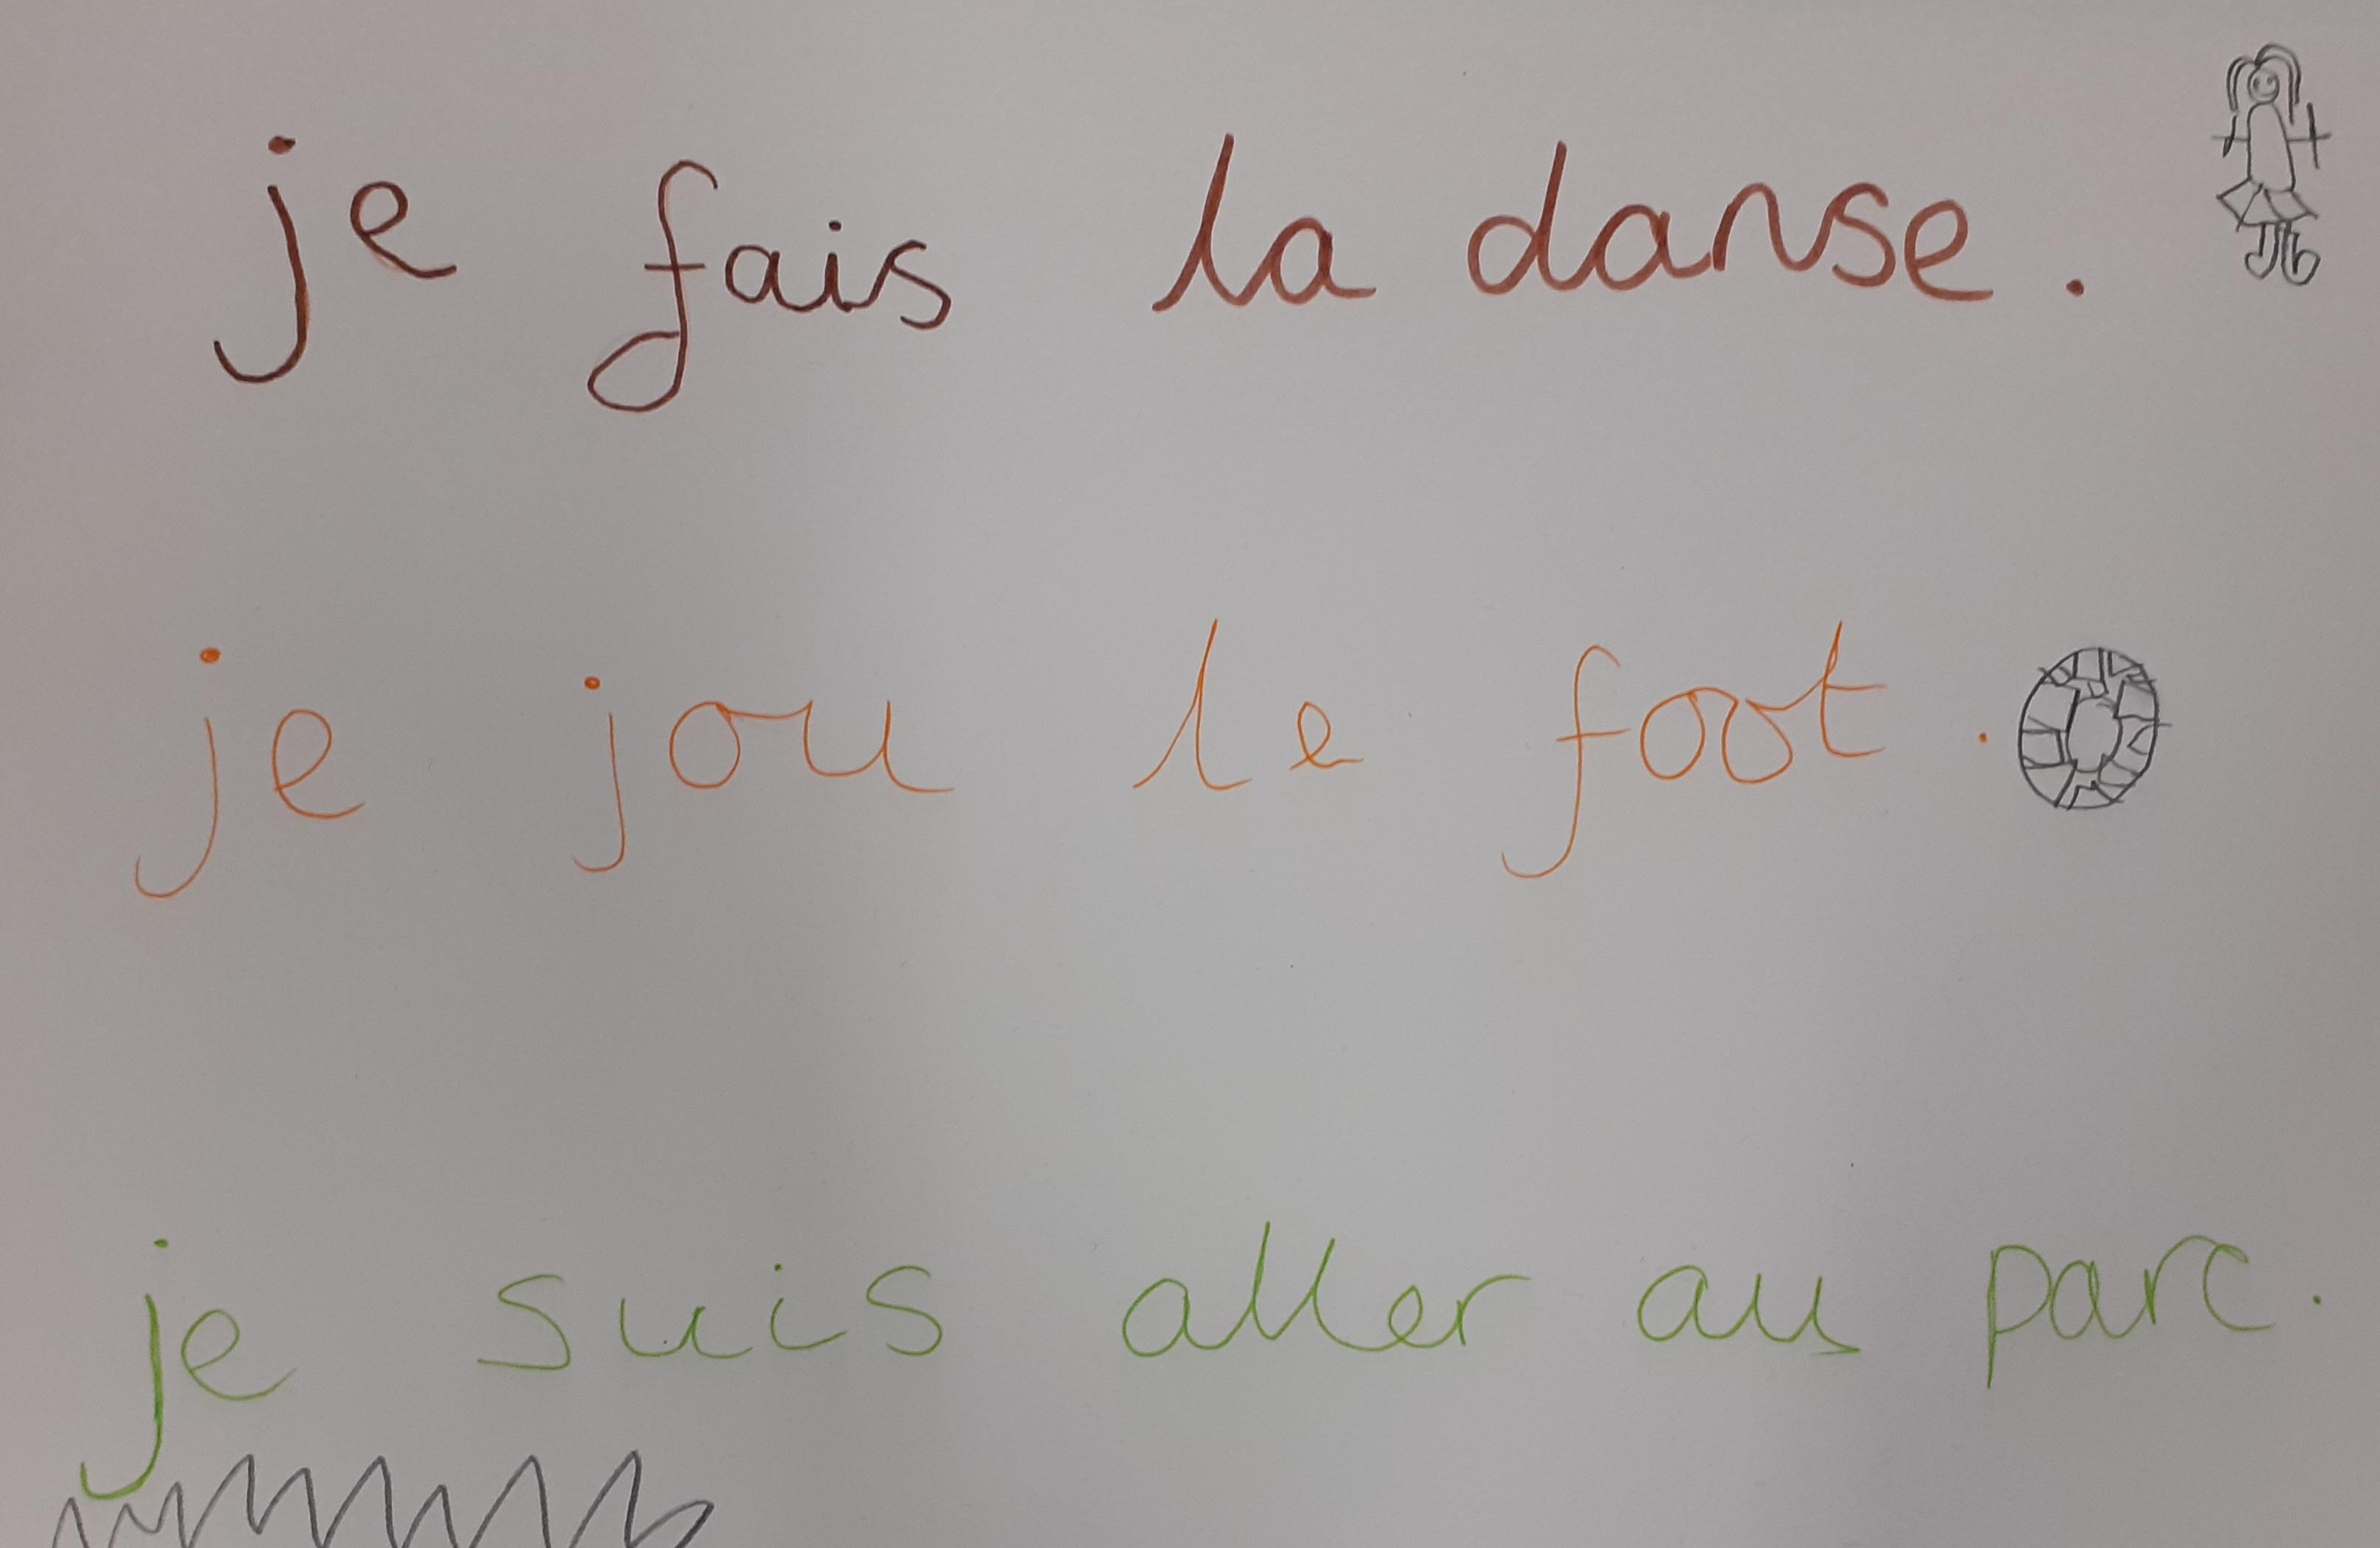 je fais la danse.
je jou le foot.
je suis aller au parc.